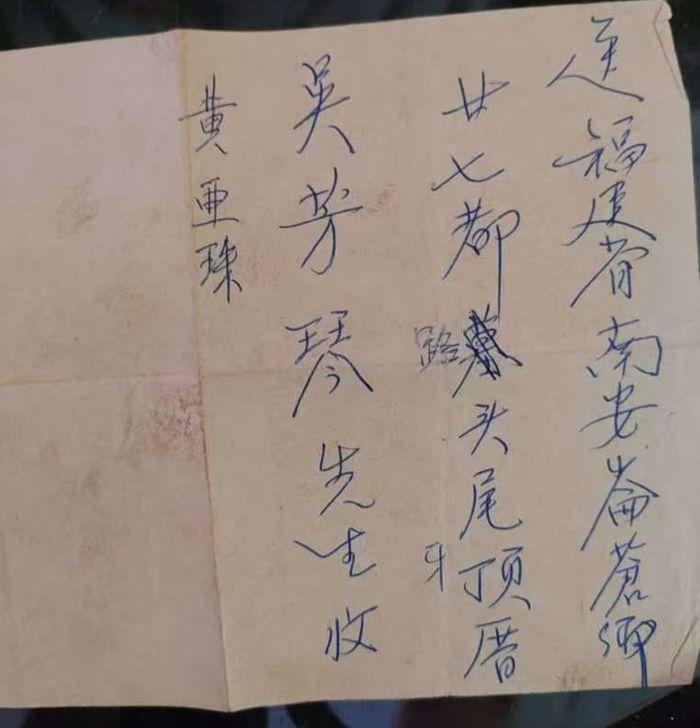 送福建省南安崙蒼鄉
廿七都路头尾顶厝
吳芳琴先生收
黃亜珠